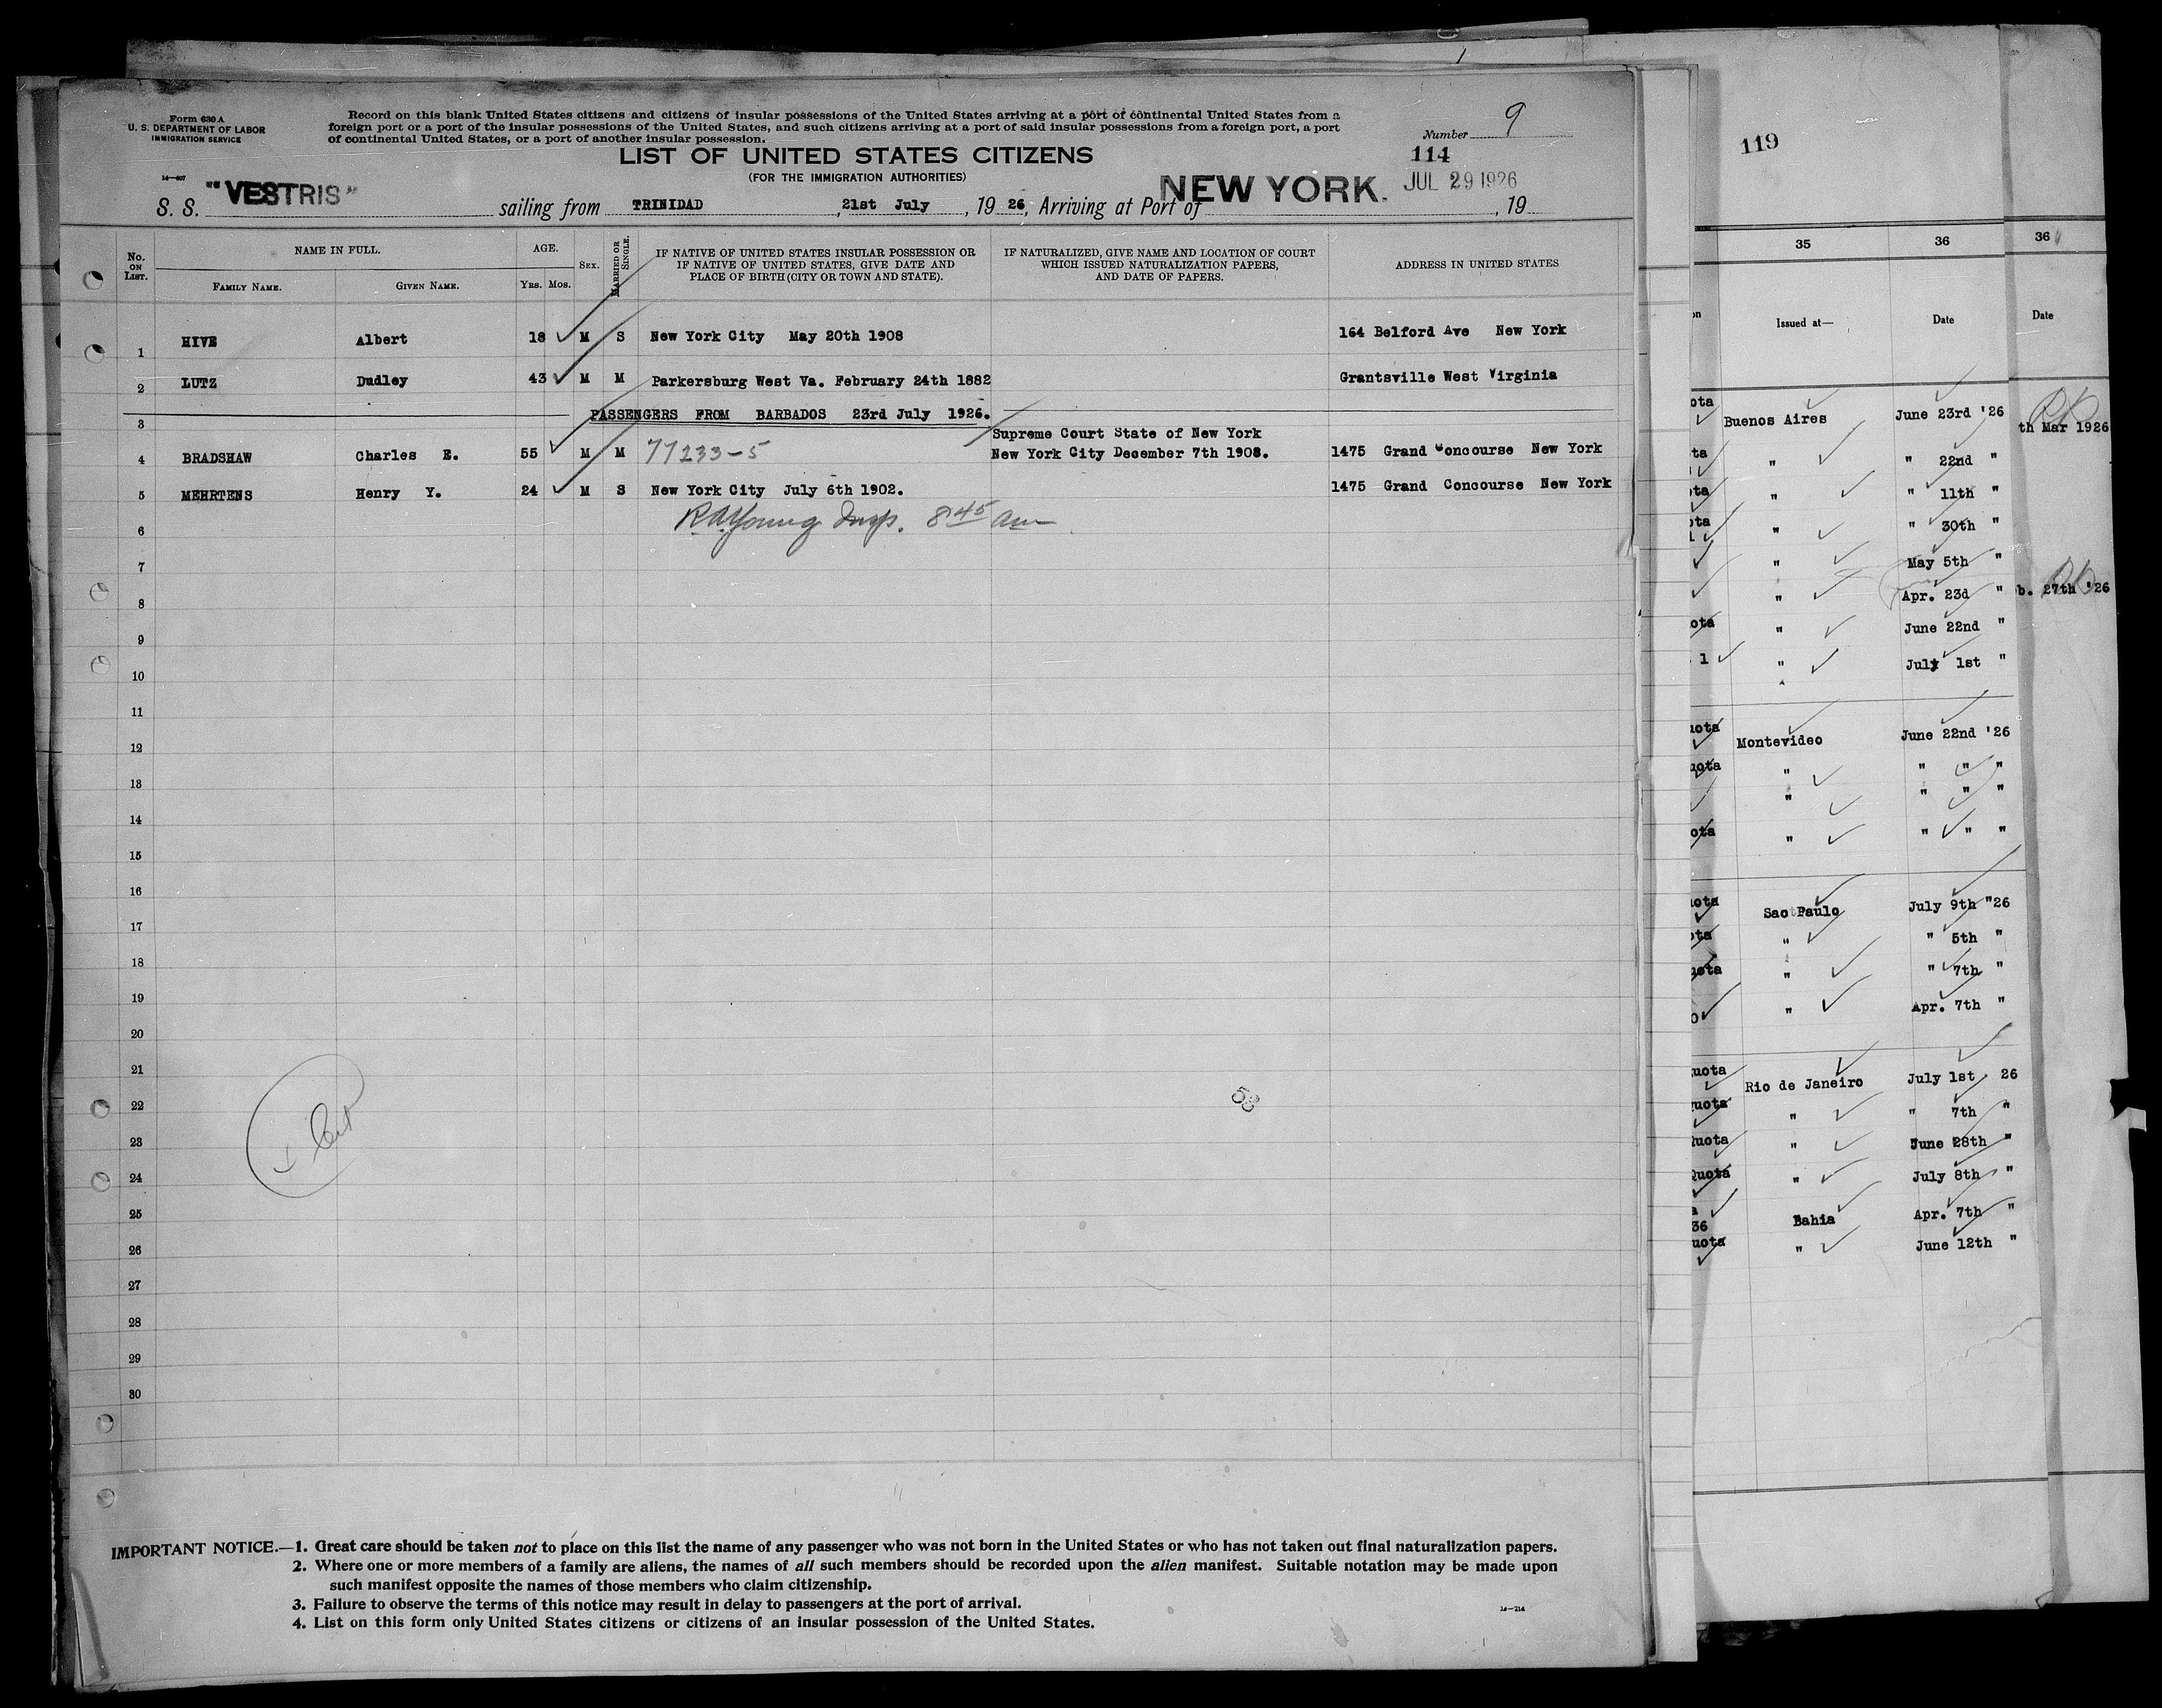 Form 630 A
U. S. DEPARTMENT OF LABOR
IMMIGRATION SERVICE
Record on this blank United States citizens and citizens of insular possessions of the United States arriving at a port of continental United States from a
foreign port or a port of the insular possessions of the United States, and such citizens arriving at a port of said insular possessions from a foreign port, a port
of continental United States, or a port of another insular possession.
Number 9
LIST OF UNITED STATES CITIZENS
114
(FOR THE IMMIGRATION AUTHORITIES)
S. S. "VESTRIS" sailing from TRINIDAD, 21st July, 19 26, Arriving at Port of NEW YORK. JUL 29 1926, 19
No. ON LIST.
NAME IN FULL.
FAMILY NAME.
GIVEN NAME.
AGE.
YRS. MOS.
SEX.
MARRIED OR SINGLE.
IF NATIVE OF UNITED STATES INSULAR POSSESSION OR
IF NATIVE OF UNITED STATES, GIVE DATE AND
PLACE OF BIRTH (CITY OR TOWN AND STATE).
IF NATURALIZED, GIVE NAME AND LOCATION OF COURT
WHICH ISSUED NATURALIZATION PAPERS,
AND DATE OF PAPERS.
ADDRESS IN UNITED STATES
1 HIVE Albert 18 M S New York City May 20th 1908 164 Belford Ave New York
2 LUTZ Dudley 43 M M Parkersburg West Va. February 24th 1882 Grantsville West Virginia
3 PASSENGERS FROM BARBADOS 23rd July 1926.
Supreme Court State of New York
4 BRADSHAW Charles E. 55 M M 77233-5 New York City December 7th 1908. 1475 Grand Concourse New York
5 MEHRTENS Henry Y. 24 M S New York City July 6th 1902. 1475 Grand Concourse New York
6 R.A. Young Insp. 8 45 am
7
8
9
10
11
12
13
14
15
16
17
18
19
20
21
22
23
24
25
26
27
28
29
30
53
IMPORTANT NOTICE.—1. Great care should be taken not to place on this list the name of any passenger who was not born in the United States or who has not taken out final naturalization papers.
2. Where one or more members of a family are aliens, the names of all such members should be recorded upon the alien manifest. Suitable notation may be made upon
such manifest opposite the names of those members who claim citizenship.
3. Failure to observe the terms of this notice may result in delay to passengers at the port of arrival.
4. List on this form only United States citizens or citizens of an insular possession of the United States.
14—214
119
35 36 36
Issued at— Date Date
ota Buenos Aires June 23rd '26
th Mar 1926
ta " " 22nd "
ota " " 11th "
ota " " 30th "
" May 5th "
" Apr. 23d " b. 27th '26
ota " June 22nd "
1 " July 1st "
uota Montevideo June 22nd '26
uota " " " "
" " " "
ota " " " "
uota Sao Paulo July 9th "26
ota " " 5th "
uota " " 7th "
" Apr. 7th "
uota Rio de Janeiro July 1st 26
quota " " 7th "
Quota " June 28th "
Quota " July 8th "
a
36 Bahia Apr. 7th "
uota " June 12th "